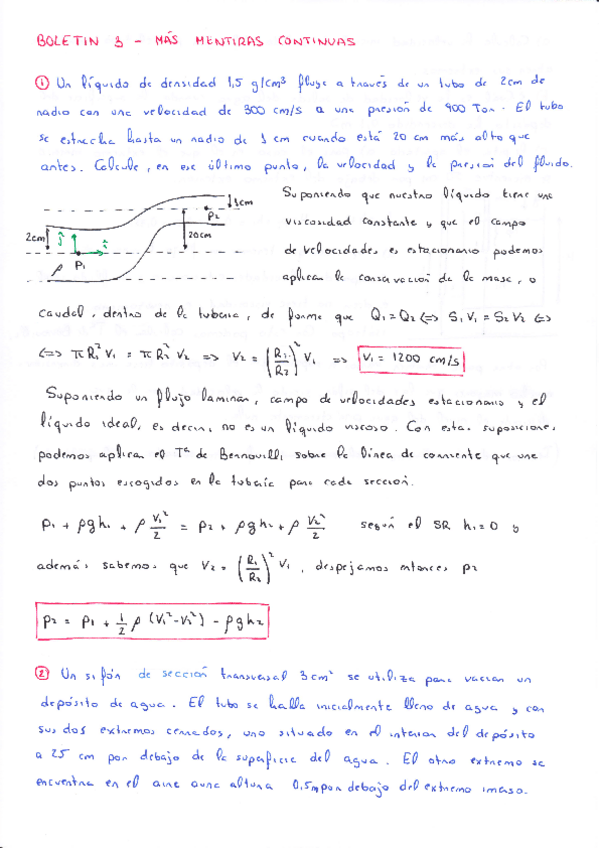 BOLETIN 3 - MÁS MENTIRAS CONTINUAS
① Un líquido de densidad 1,5 g/cm³ fluye a través de un tubo de 2cm de
radio con una velocidad de 300 cm/s a una presión de 900 Torr. El tubo
se estrecha hasta un radio de 1 cm cuando está 20 cm más alto que
antes. Calcule, en ese último punto, la velocidad y la presión del fluido.
1cm
P2
2cm
20cm
P1
ρ
Suponiendo que nuestro líquido tiene una
viscosidad constante y que el campo
de velocidades es estacionario podemos
aplicar la conservación de la masa, o
caudal, dentro de la tubería, de forma que Q₁ = Q₂ <=> S₁V₁ = S₂V₂ <=>
<=> πR₁²V₁ = πR₂²V₂ => V₂ = (R₁/R₂)² V₁ => V₁ = 1200 cm/s
Suponiendo un flujo laminar, campo de velocidades estacionario y el
líquido ideal, es decir, no es un líquido viscoso. Con estas suposiciones,
podemos aplicar el Tª de Bernoulli sobre la línea de corriente que une
dos puntos escogidos en la tubería para cada sección.
P₁ + ρgh₁ + ρ V₁²/2 = P₂ + ρgh₂ + ρ V₂²/2 según el SR h₁=0 y
además sabemos que V₂ = (R₁/R₂)² V₁, despejamos entonces P₂
P₂ = P₁ + 1/2 ρ (V₁²-V₂²) - ρgh₂
② Un sifón de sección transversal 3cm² se utiliza para vaciar un
depósito de agua. El tubo se halla inicialmente lleno de agua y con
sus dos extremos cerrados, uno situado en el interior del depósito
a 25 cm por debajo de la superficie del agua. El otro extremo se
encuentra en el aire a una altura 0,5m por debajo del extremo inmerso.